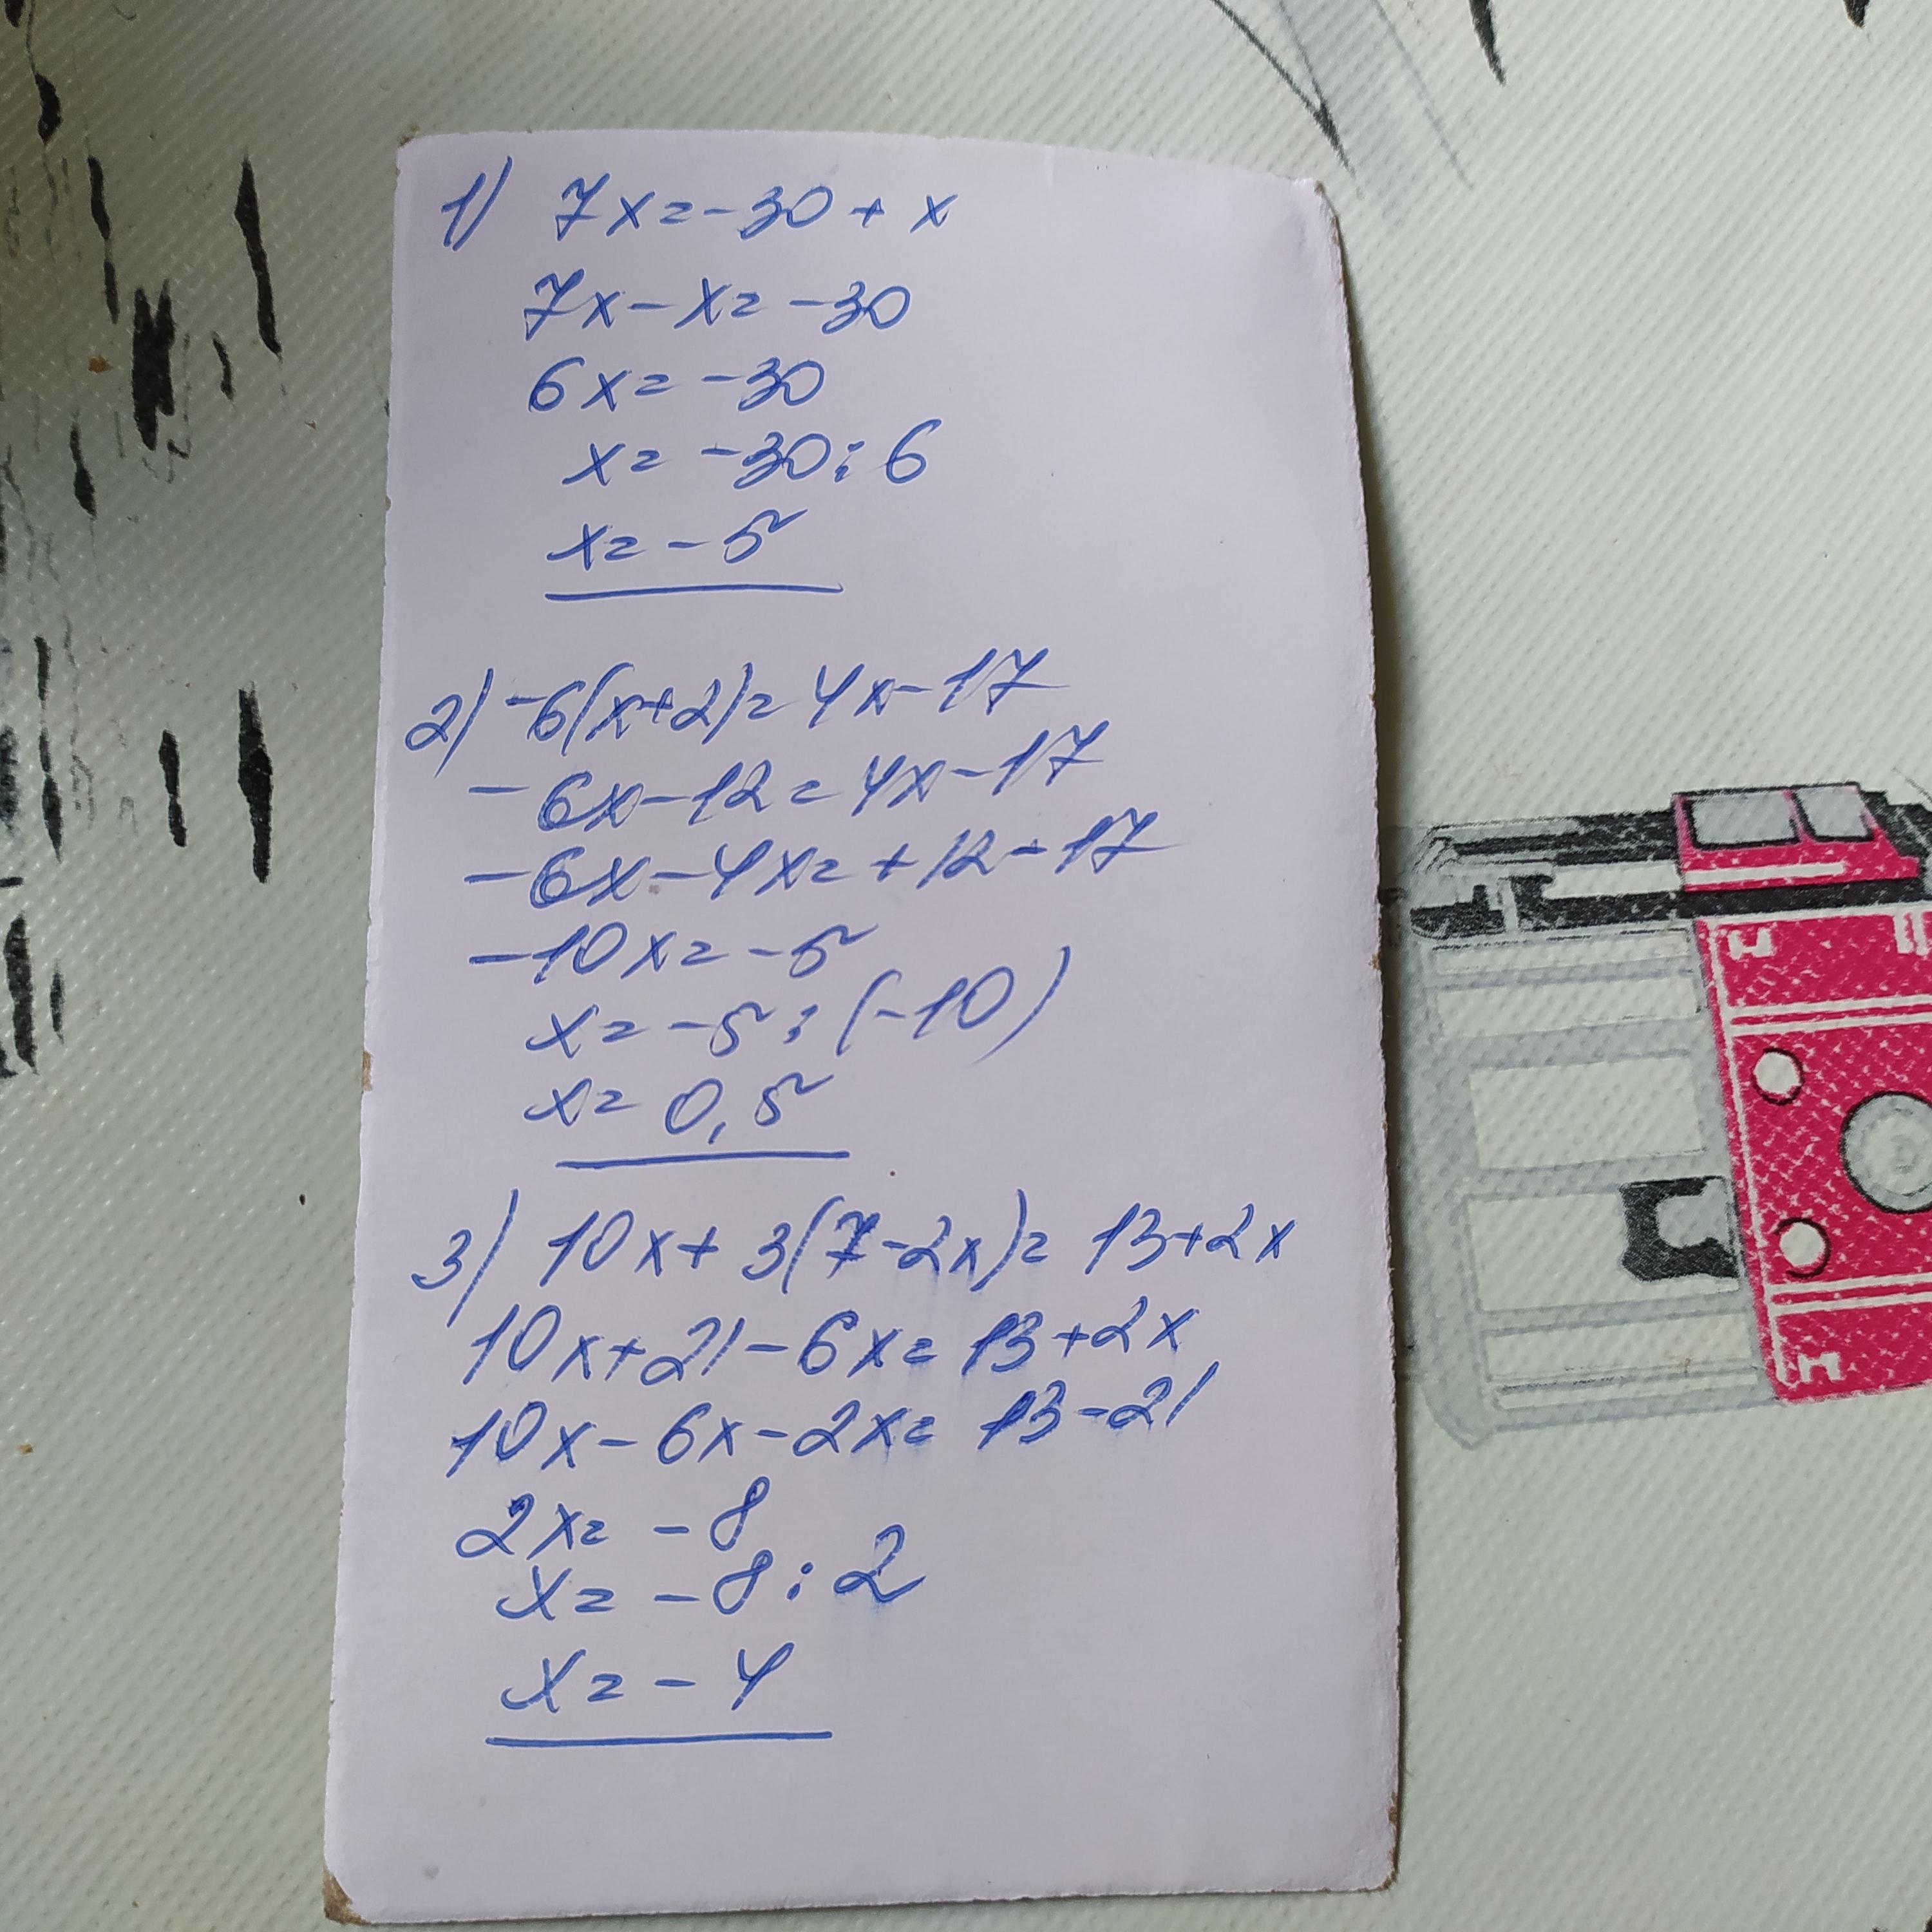 1) 7x=-30+x
7x-x=-30
6x=-30
x=-30:6
x=-5
2) -6(x+2)=4x-17
-6x-12=4x-17
-6x-4x=+12-17
-10x=-5
x=-5:(-10)
x=0,5
3) 10x+3(7-2x)=13+2x
10x+21-6x=13+2x
10x-6x-2x=13-21
2x=-8
x=-8:2
x=-4